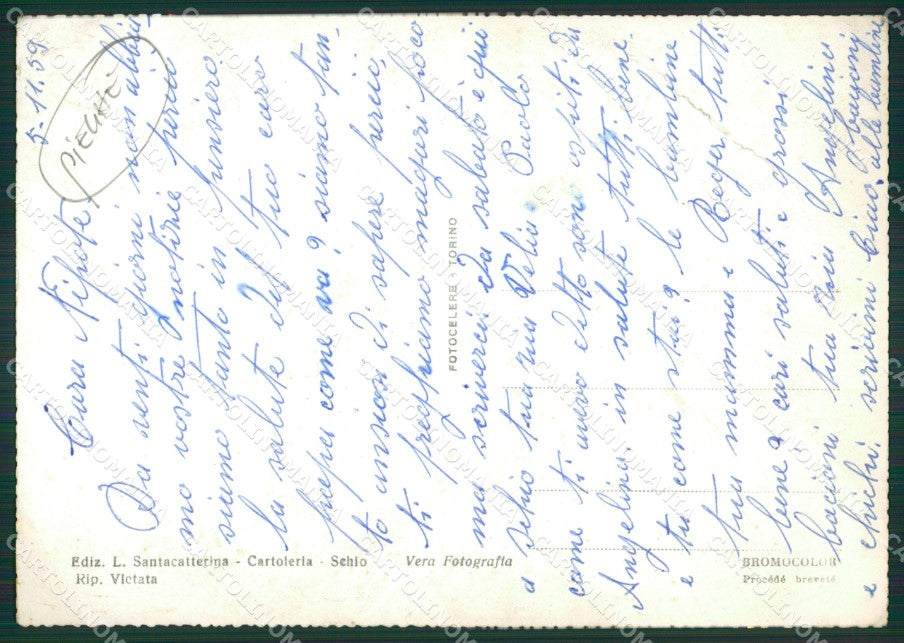 5-11.59
PIEGHE
Cara Nipote
Da venti giorni non abbia-
mo vostre notizie perciò
siamo tanto in pensiero
la salute del tuo caro
papa come va? siamo tan-
to ansiosi di sapere perciò,
ti preghiamo magari poco
ma scriverci da sabato è qui
a schio tua zia Velia Paolo
come ti avevo detto sono ospiti di
Angelina in salute tutti bene
e tu come stai? le bambine
tua mamma e Roger tutti
bene? cari saluti e grossi
bacioni tua zia Angelina
e chichi scrivimi Ciao,
bacioni
alle bambine
FOTOCELERE - TORINO
Ediz. L. Santacatterina - Cartoleria - Schio
Rip. Vietata
Vera Fotografia
BROMOCOLOR
Procédé breveté
CARTOLINOMANIA